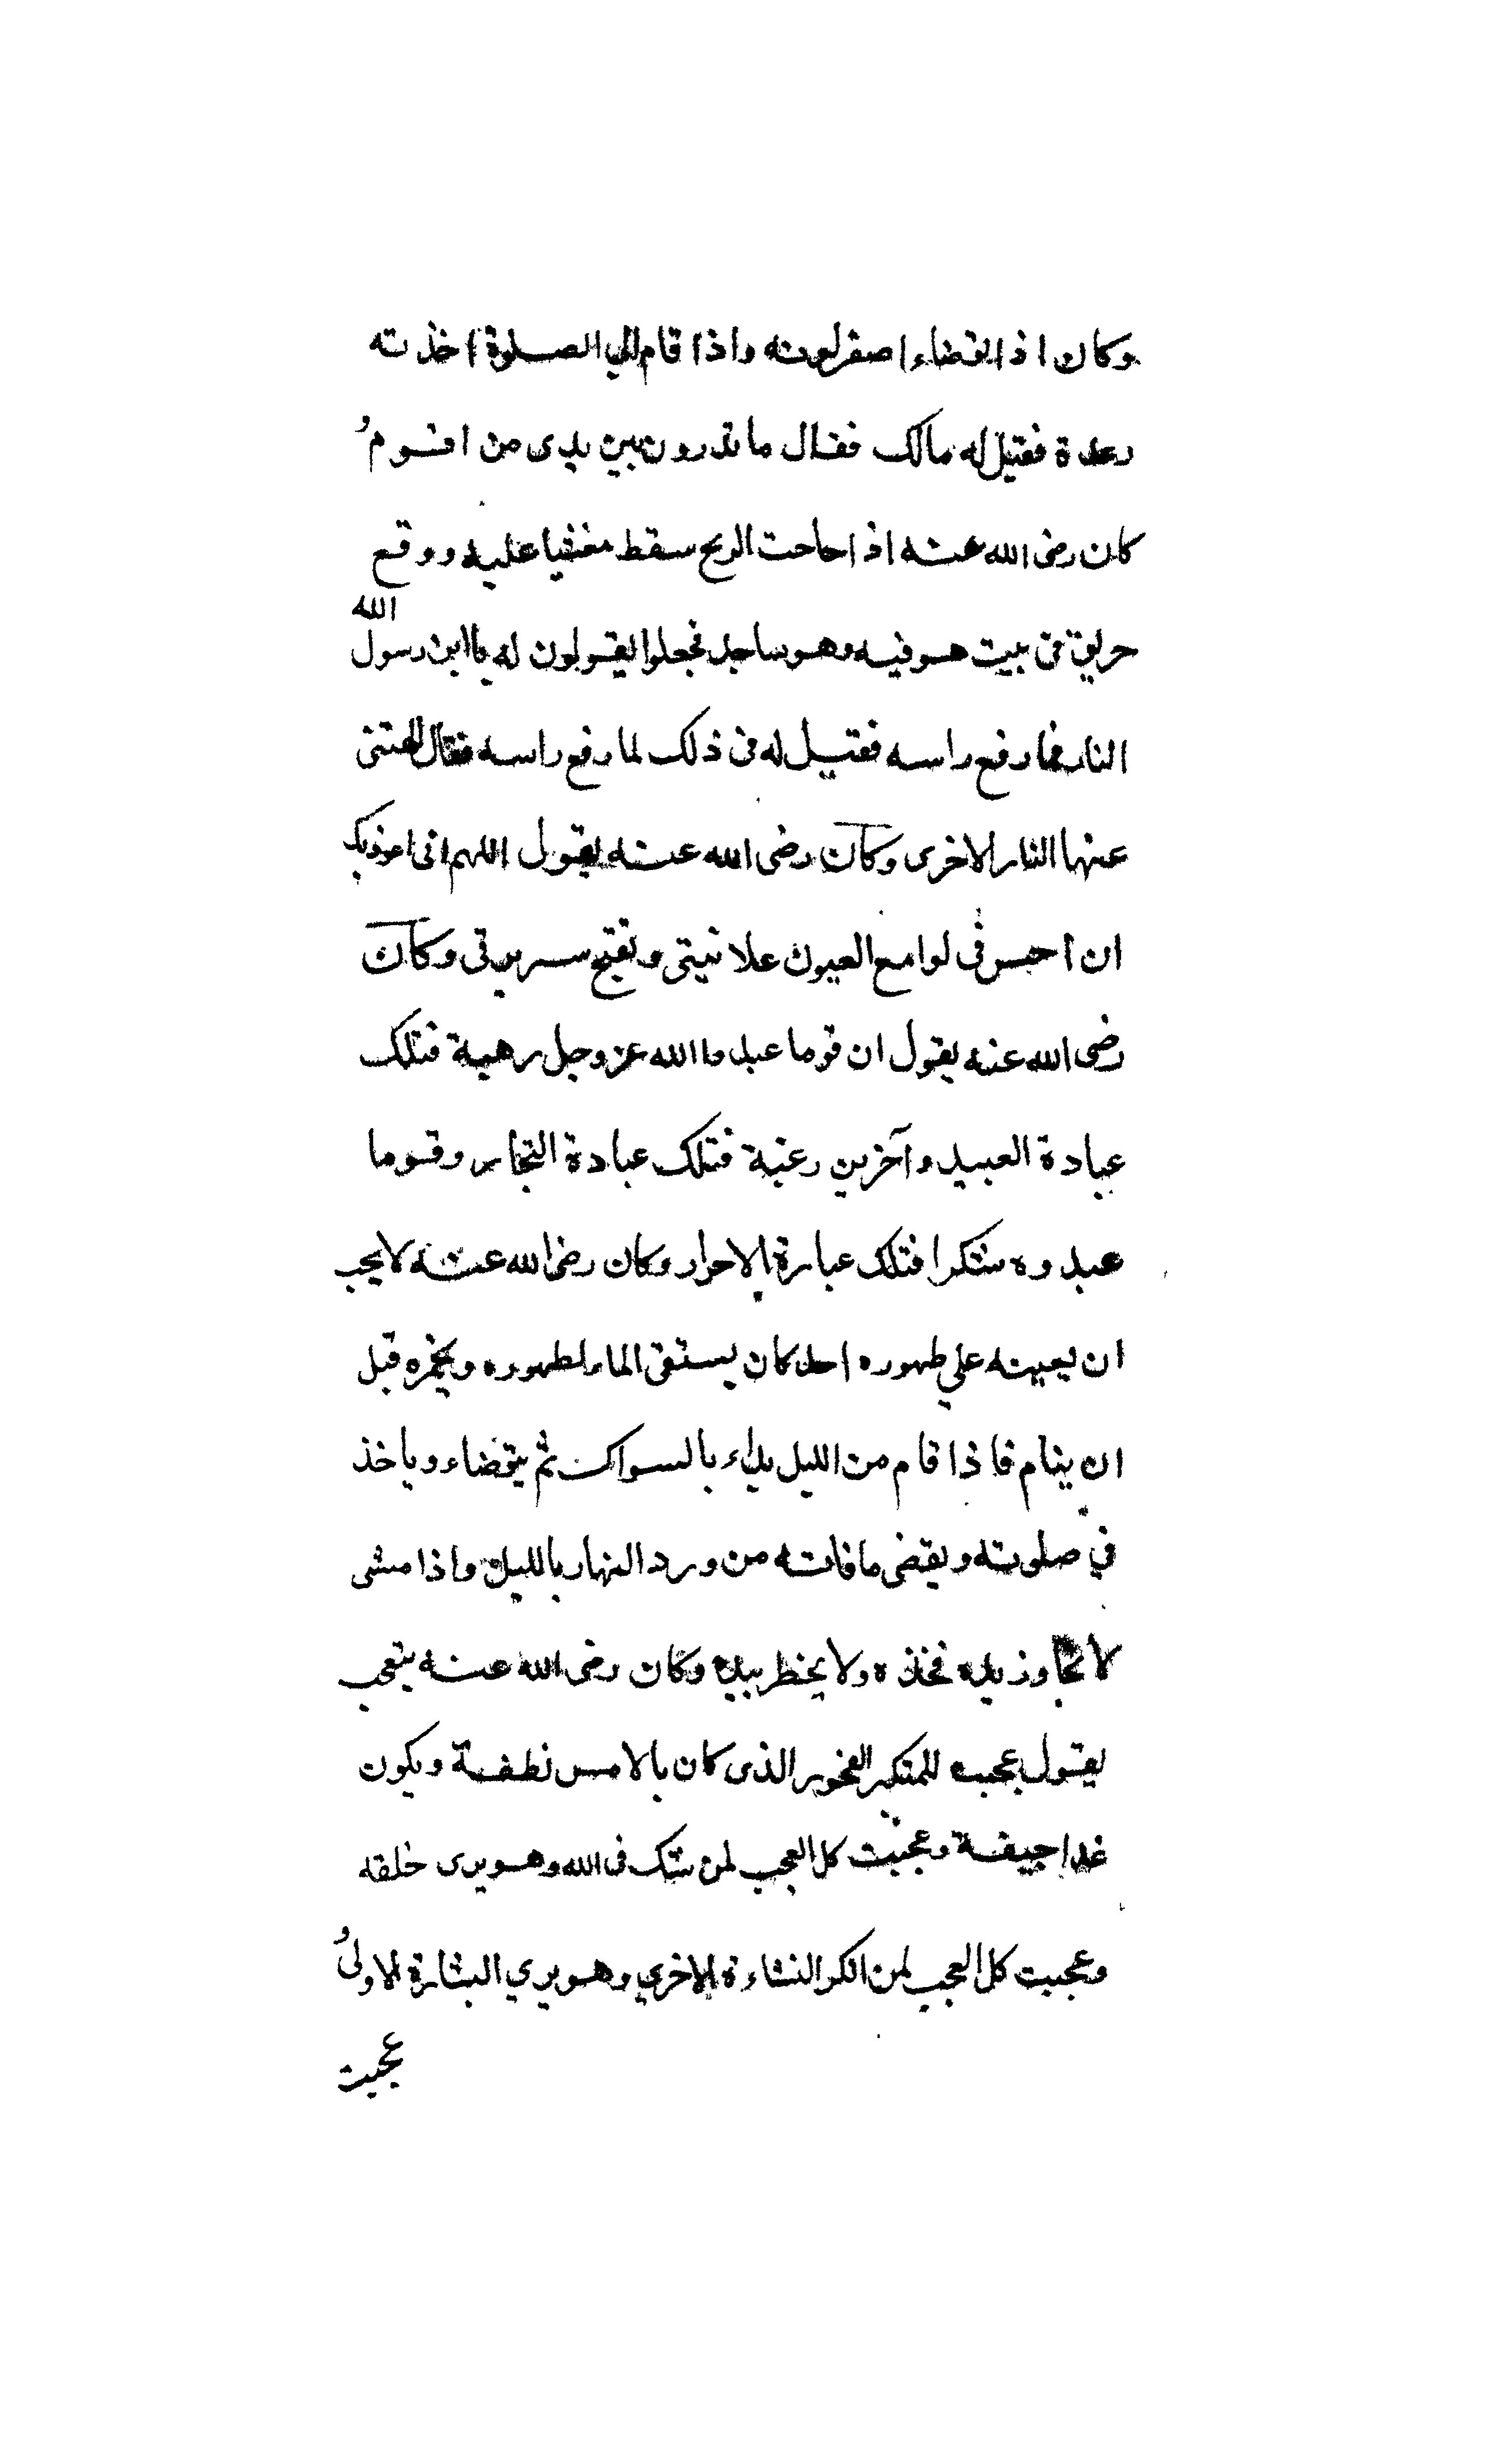 وكان اذا توضاء اصفر لونه واذا قام الي الصلوة اخذته
رعدة فقيل له مالك فقال ما تدرون بين يدى من اقوم و
كان رضى الله عنه اذا حاحت الريح سقط مغشيا عليه ووقع
حريق فى بيت هو فيه وهو ساجد فجعلوا يقولون له يا ابن رسول الله
النار فما رفع راسه فقيل له فى ذلك لما رفع راسه فقال الهتنى
عنها النار الاخرى وكان رضى الله عنه يقول اللهم انى اعوذ بك
ان احسن فى لوامع العيون علانيتى وتقبح سريرتى وكان
رضى الله عنه يقول ان قوما عبدوا الله عز وجل رهبة فتلك
عبادة العبيد وآخرين رغبة فتلك عبادة التجار وقوما
عبدوه شكرا فتلك عبارة الاحرار وكان رضى الله عنه لا يحب
ان يعينه علي طهوره احد كان يستقى الماء لطهوره ويخمره قبل
ان ينام فاذا قام من الليل بداء بالسواك ثم يتوضاء وياخذ
في صلوته ويقضى ما فاته من ورد النهار بالليل واذا مشى
لا تجاوز يده فخذه ولا يخطر بيده وكان رضى الله عنه يتعجب
يقول عجبت للمتكبر الفخور الذى كان بالامس نطفة ويكون
غدا جيفة وعجبت كل العجب لمن شك فى الله وهو يرى خلقه
وعجبت كل العجب لمن انكر النشاءة الاخري وهو يري النشارة الاولى و
عجبت